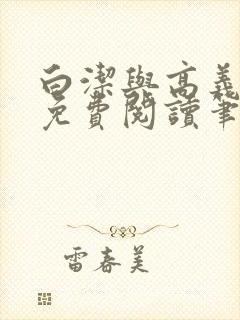 白潔與高義
免費閱讀筆
雷春美